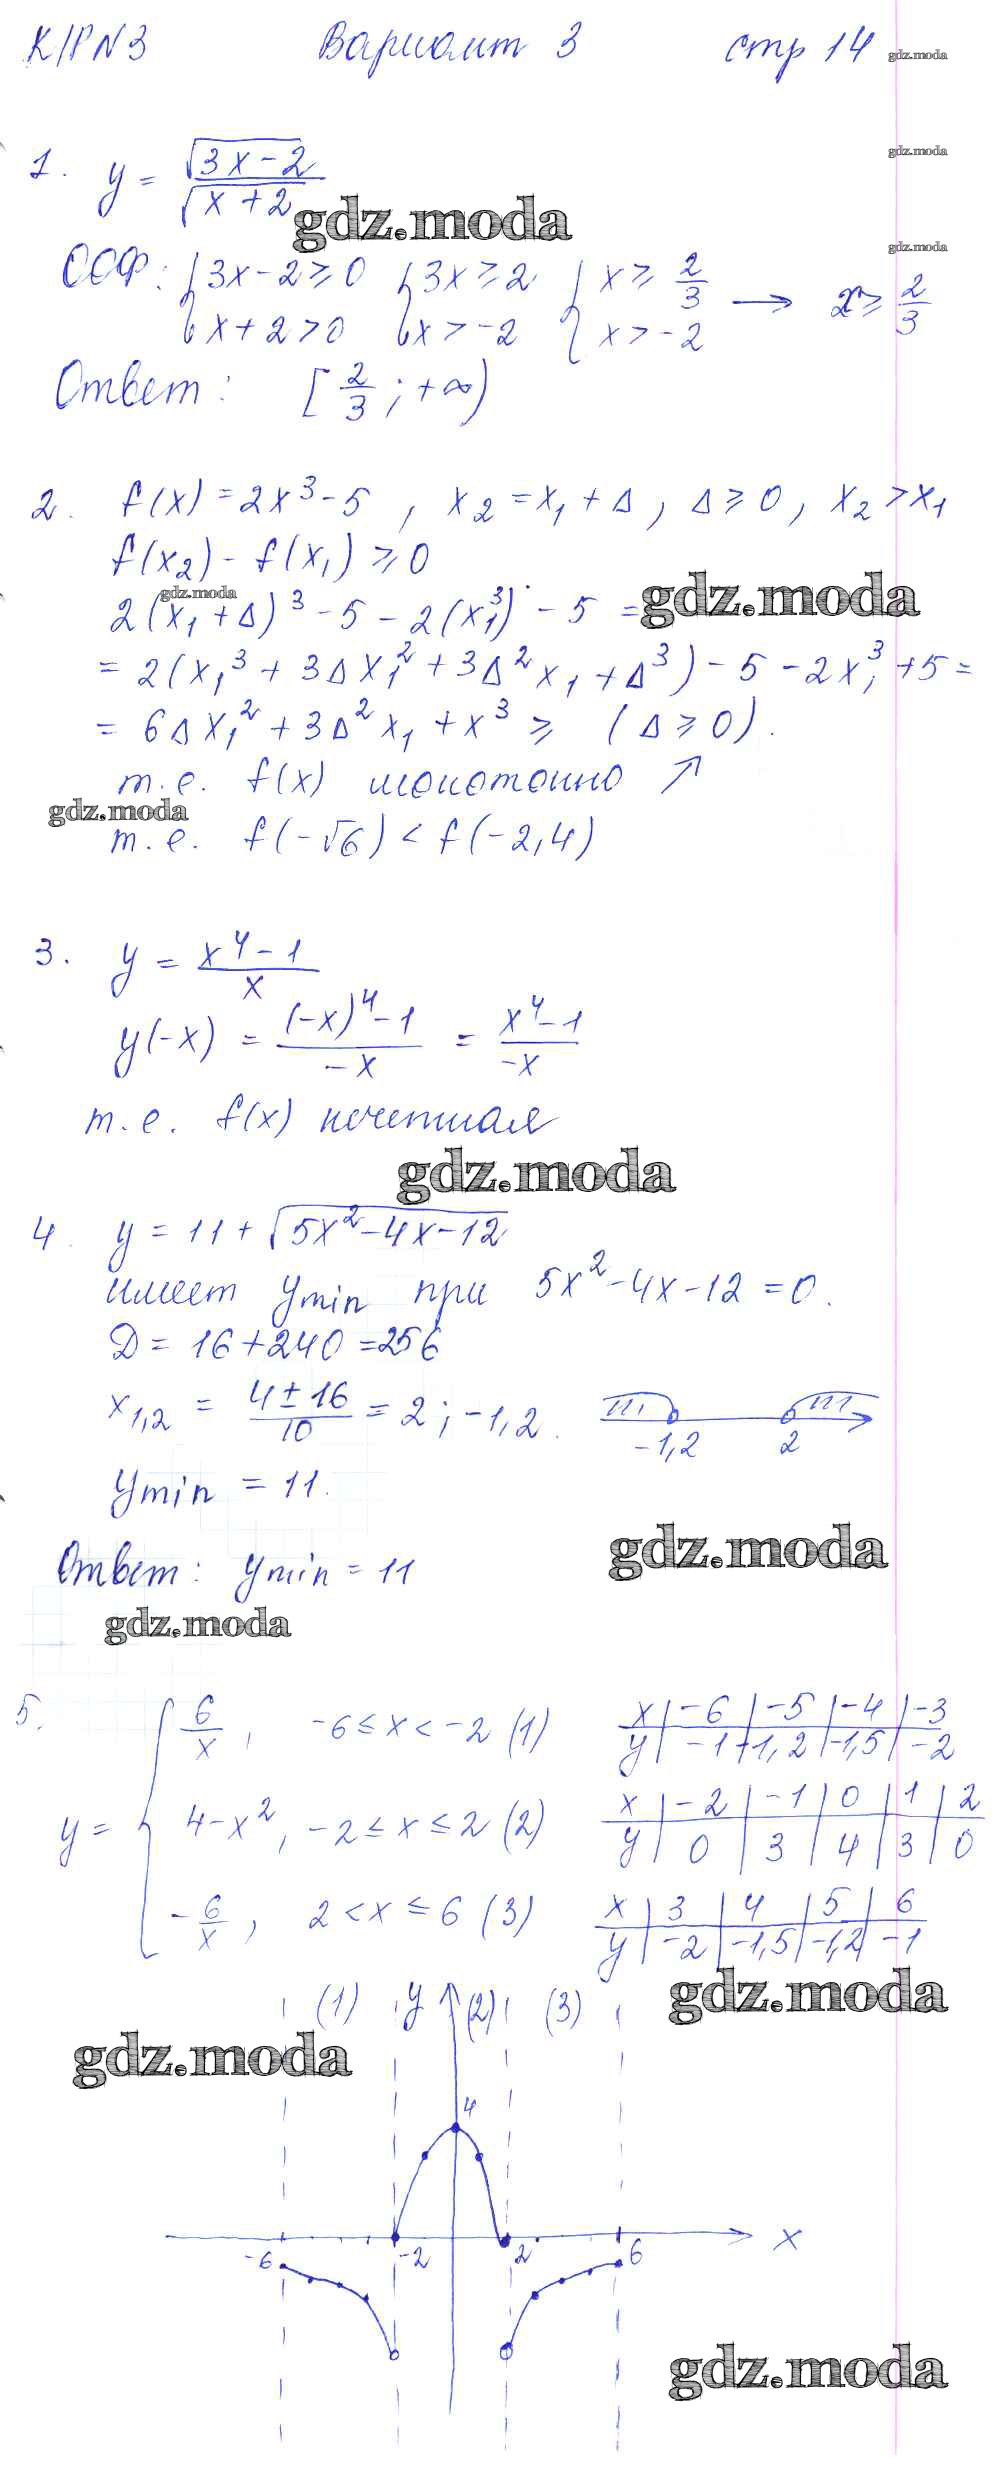 К/Р №3 Вариант 3 стр 14
gdz.moda
1. y = √(3x-2) / √(x+2)
gdz.moda
gdz.moda
gdz.moda
ООФ: { 3x-2≥0 { 3x≥2 { x≥ 2/3 → x≥ 2/3
x+2>0 x>-2 x>-2
Ответ: [2/3; +∞)
2. f(x) = 2x³-5, x₂ = x₁ + Δ, Δ≥0, x₂ > x₁
f(x₂) - f(x₁) ≥ 0
gdz.moda
gdz.moda
2(x₁+Δ)³ - 5 - 2(x₁³) - 5 =
= 2(x₁³ + 3Δx₁² + 3Δ²x₁ + Δ³) - 5 - 2x₁³ + 5 =
= 6Δx₁² + 3Δ²x₁ + x³ ≥ (Δ≥0).
т.е. f(x) монотонно ↗
gdz.moda
т.е. f(-√6) < f(-2,4)
3. y = (x⁴-1)/x
y(-x) = ((-x)⁴-1)/(-x) = (x⁴-1)/(-x)
т.е. f(x) нечетная
gdz.moda
4. y = 11 + √(5x²-4x-12)
имеет ymin при 5x²-4x-12 = 0.
D = 16+240 = 256
x₁,₂ = (4±16)/10 = 2; -1,2.
-1,2 2
ymin = 11.
gdz.moda
Ответ: ymin = 11
gdz.moda
5. y = { 6/x, -6≤x<-2 (1)
4-x², -2≤x≤2 (2)
-6/x, 2<x≤6 (3)
x | -6 | -5 | -4 | -3
y | -1 | -1,2 | -1,5 | -2
x | -2 | -1 | 0 | 1 | 2
y | 0 | 3 | 4 | 3 | 0
x | 3 | 4 | 5 | 6
y | -2 | -1,5 | -1,2 | -1
gdz.moda
(1) y (2) (3)
gdz.moda
4
x
-6 -2 2 6
gdz.moda